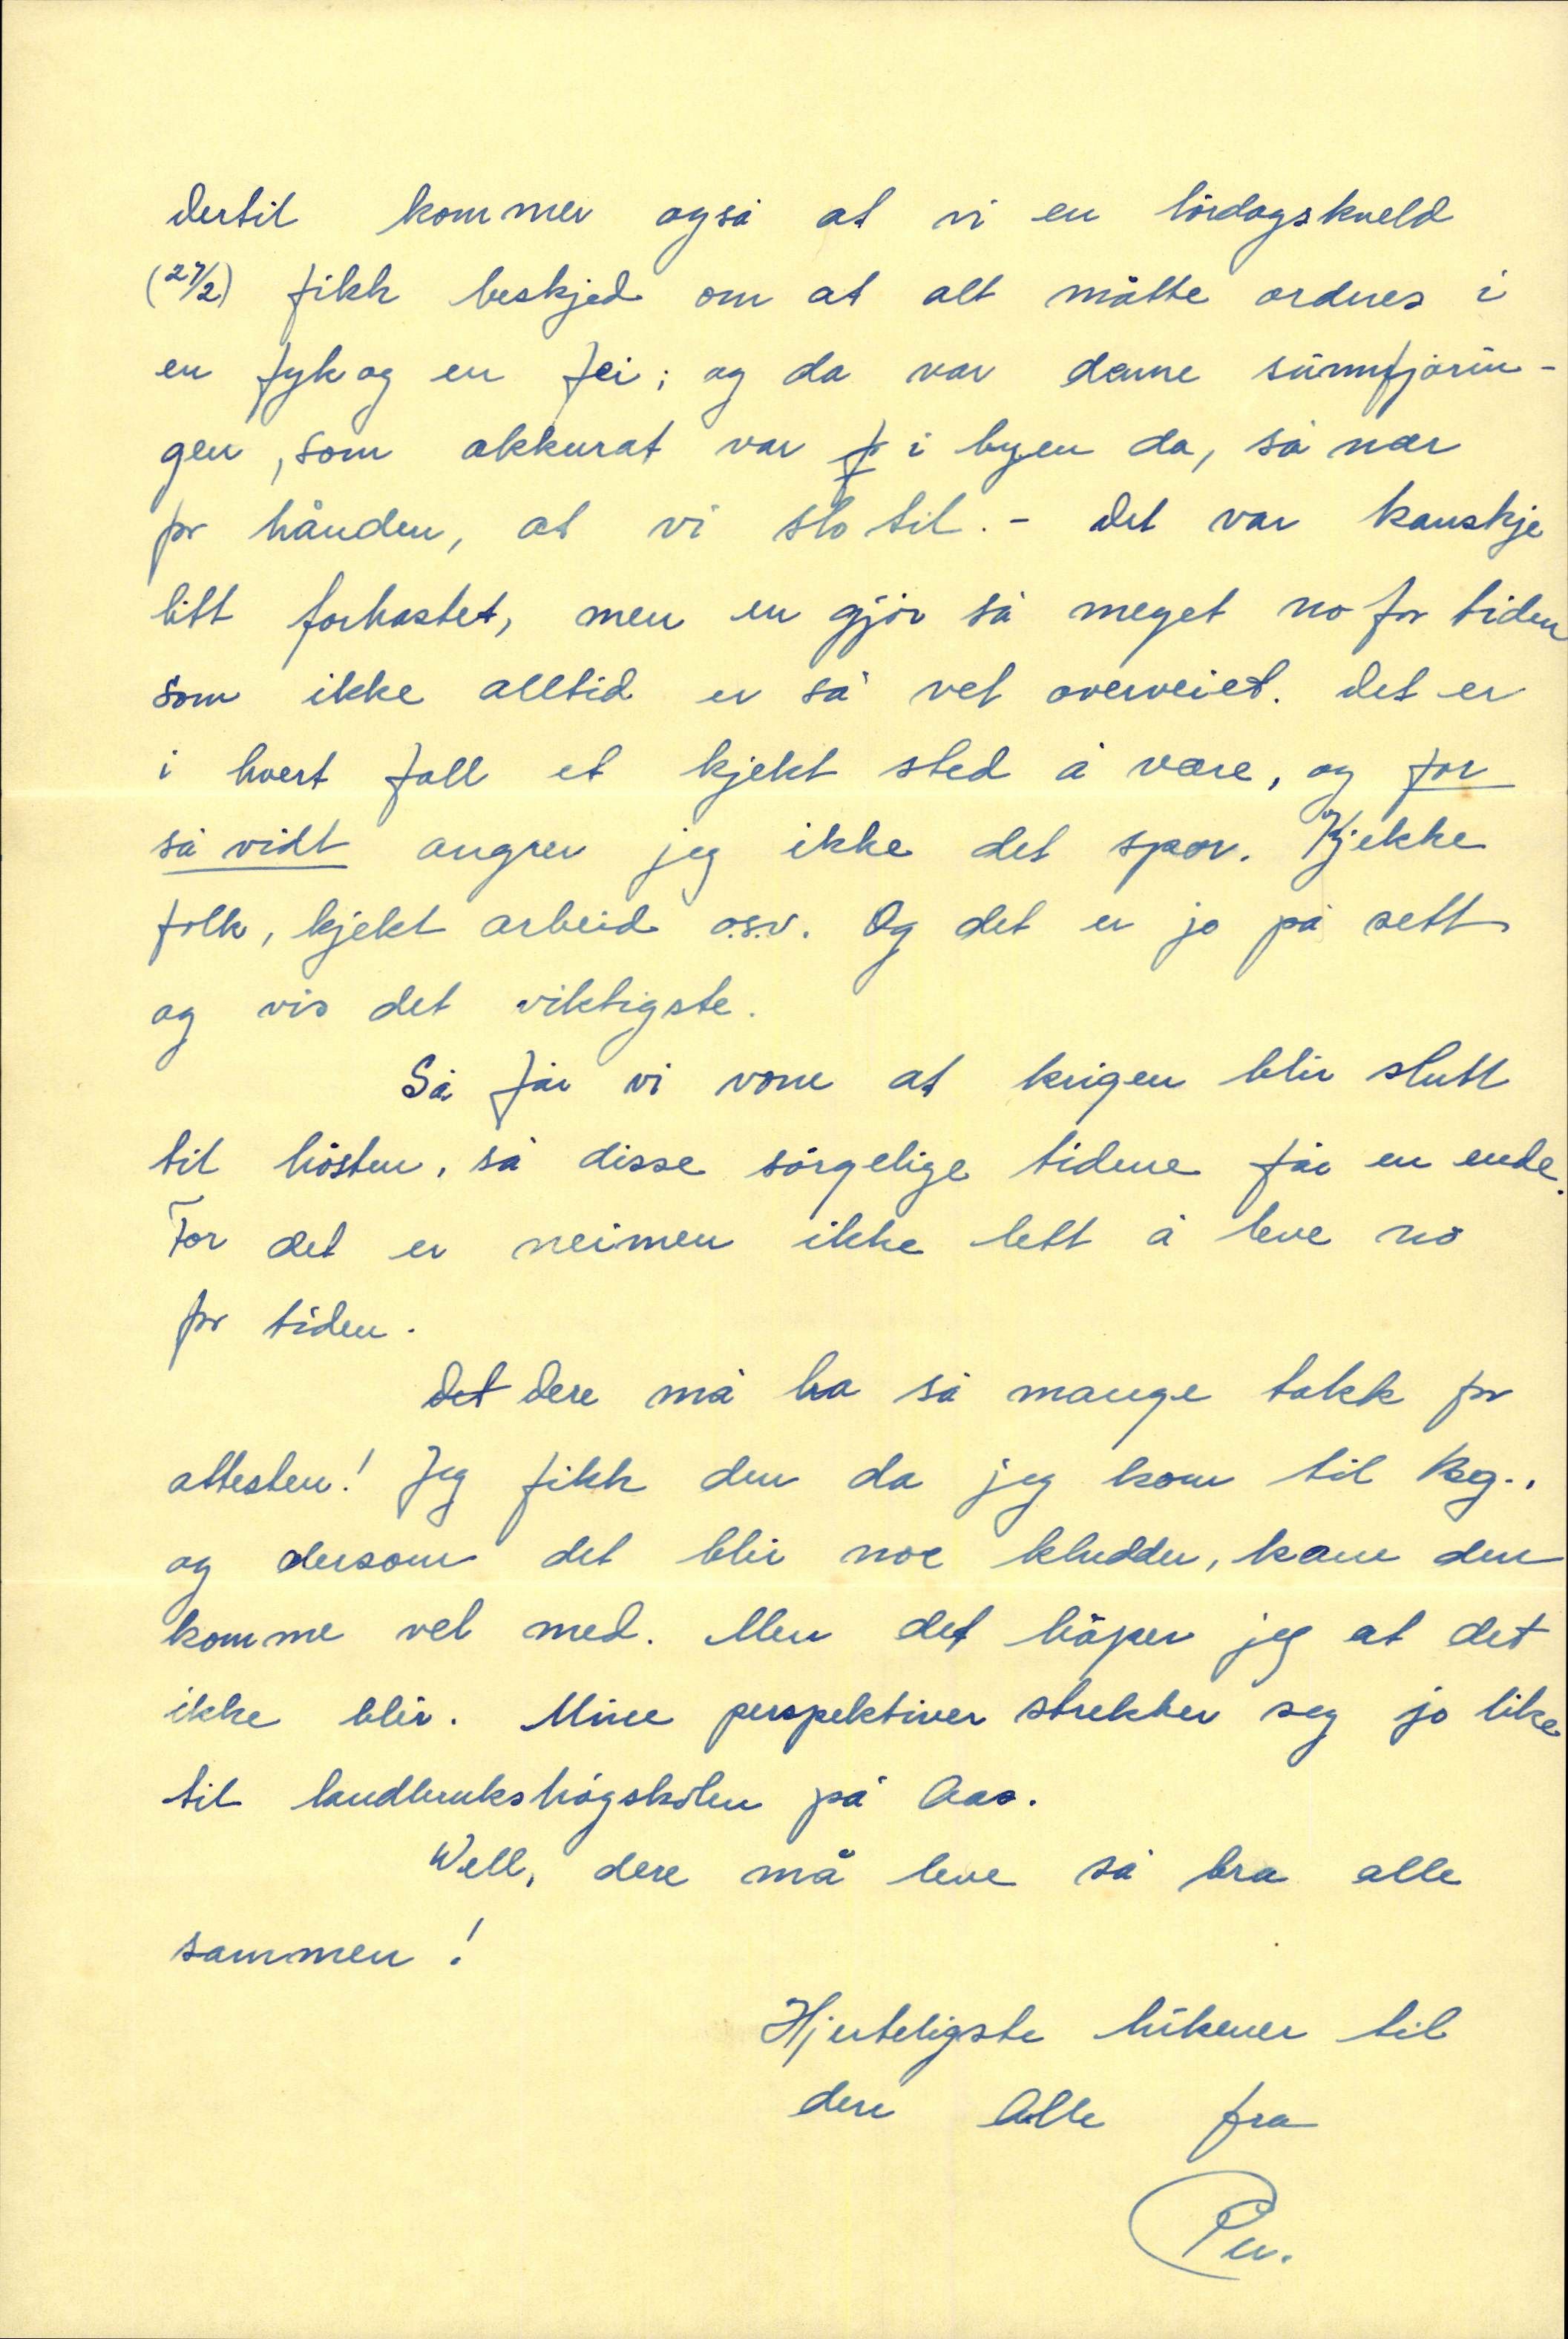 Dertil kommer også at vi en lördagskveld
(27/2) fikk beskjed om at alt måtte ordnes i
en fyk og en fei; og da var denne sunnfjorin-
gen, som akkurat var f i byen da, så nær
for hånden, at vi slo til. - Det var kanskje
litt forhastet, men en gjör så meget no for tiden
som ikke alltid er så vel overveiet. Det er
i hvert fall et kjekt sted å være, og for
så vidt angrer jeg ikke det spor. Kjekke
folk, kjekt arbeid o.s.v. Og det er jo på sett
og vis det viktigste.
Så får vi vone at krigen blir slutt
til hösten, så disse sörgelige tidene får en ende.
For det er neimen ikke lett å leve no
for tiden.
Det Dere må ha så mange takk for
attesten! Jeg fikk den da jeg kom til Bg.,
og dersom det blir noe kludder, kann den
komme vel med. Men det håper jeg at det
ikke blir. Mine perspektiver strekker seg jo like
til landbrukshögskolen på Aas.
Well, dere må leve så bra alle
sammen!
Hjerteligste hilsener til
dere Alle fra
Per.